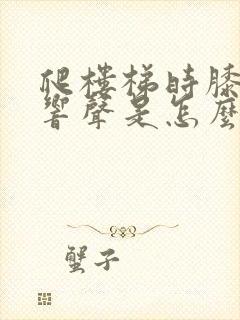 爬樓梯時膝
響聲是怎麼
蟹子